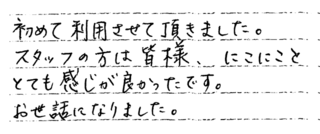 初めて利用させて頂きました。
スタッフの方は皆様、にこにこと
とても感じが良かったです。
お世話になりました。